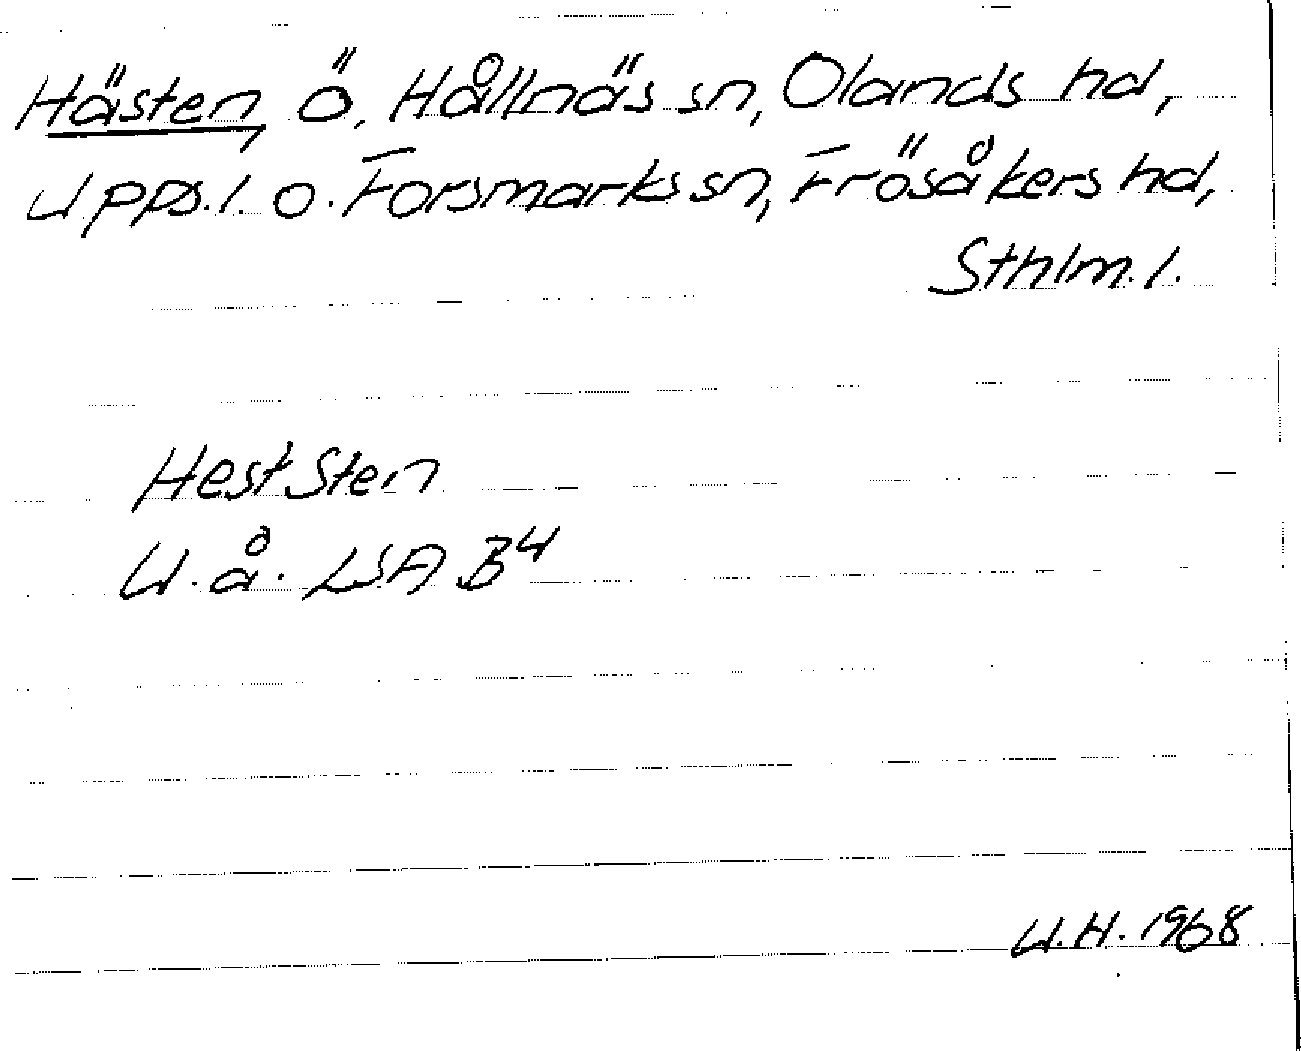 Hästen, ö, Hållnäs sn, Olands hd,
Upps.l. o. Forsmarks sn, Frösåkers hd,
Sthlm.l.
Hest Sten
U.å. LSA B4
U.H. 1968